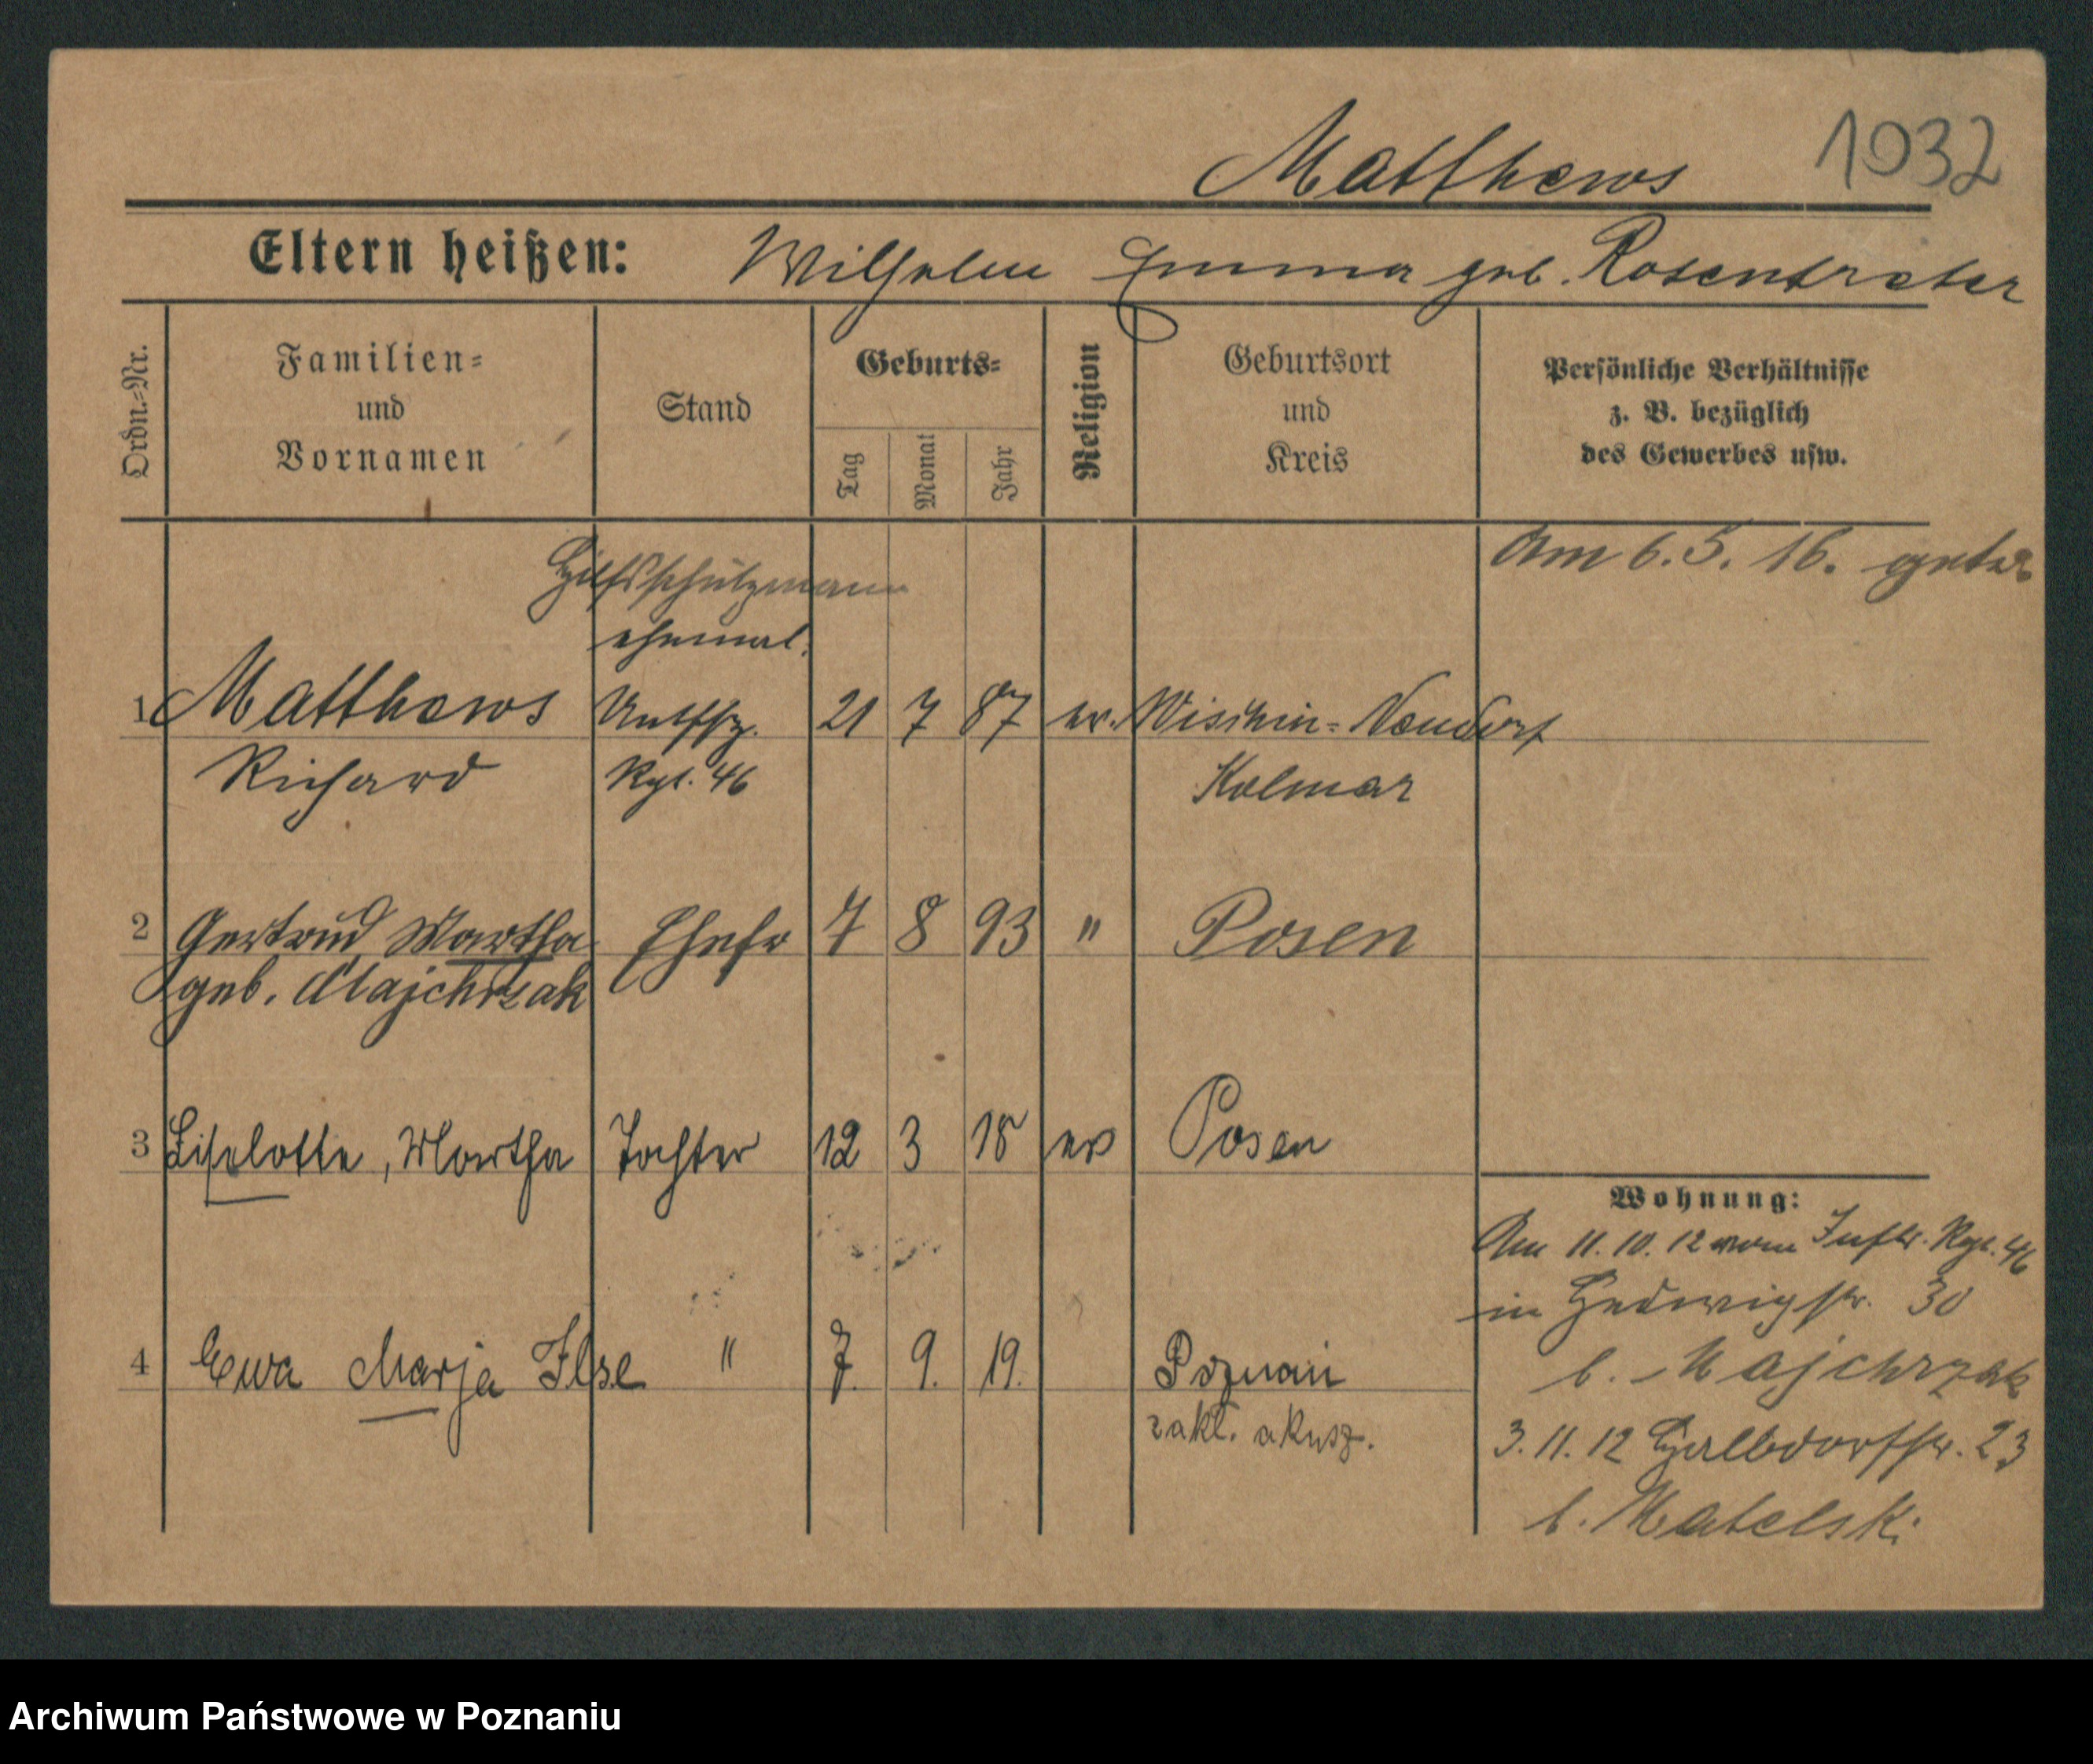 Matthews 1032
Eltern heißen: Wilhelm Emma geb. Rosentreter
Ordn.-Nr.
Familien-
und
Vornamen
Stand
Geburts-
Tag
Monat
Jahr
Religion
Geburtsort
und
Kreis
Persönliche Verhältnisse
z. B. bezüglich
des Gewerbes usw.
Am 6. 5. 16. getr.
Hilfsschutzmann
ehemal.
1 Matthews Untffz. 21 7 87 ev. Wischin-Neudorf
Richard Rgt. 46 Kolmar
2 Gertrud Martha Ehefr 7 8 93 " Posen
geb. Majchrzak
3 Liselotte, Martha Tochter 12 3 18 ev Posen
4 Ewa Marja Ilse " 7. 9. 19. Poznań
zakł. akusz.
Wohnung:
Am 11. 10. 12 vom Inftr. Rgt. 46
in Hedwigstr. 30
b. Majchrzak
3. 11. 12 Halbdorfstr. 23
b. Matelski
Archiwum Państwowe w Poznaniu